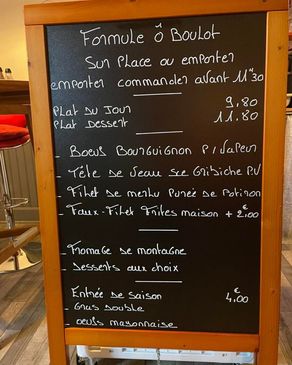 Formule ô Boulot
Sur Place ou emporter
emporter commander avant 11H30
Plat du Jour 9,80
Plat Dessert 11.80
- Boeuf Bourguignon P/Vapeur
- Tête de Veau sce Gribiche PV
- Filet de merlu Purée de Potiron
- Faux-Filet Frites maison + 2€00
- Fromage de montagne
- Desserts aux choix
Entrée de saison 4€,00
- Gras Double
- oeufs mayonnaise